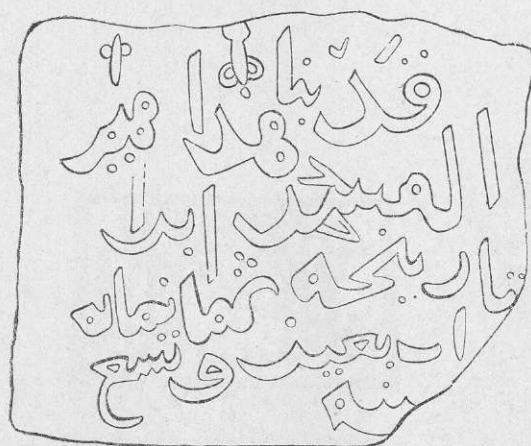 قد بنا هذا
المسجد ابدا
تاريخه ثمانمايه
اربعين وتسع
سنة